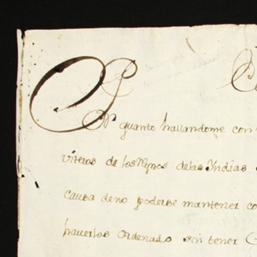 Por quanto hallandome con
viveros de los Rynos de las Yndias
causa de no poderse mantener co
haverlos ordenado sin tener